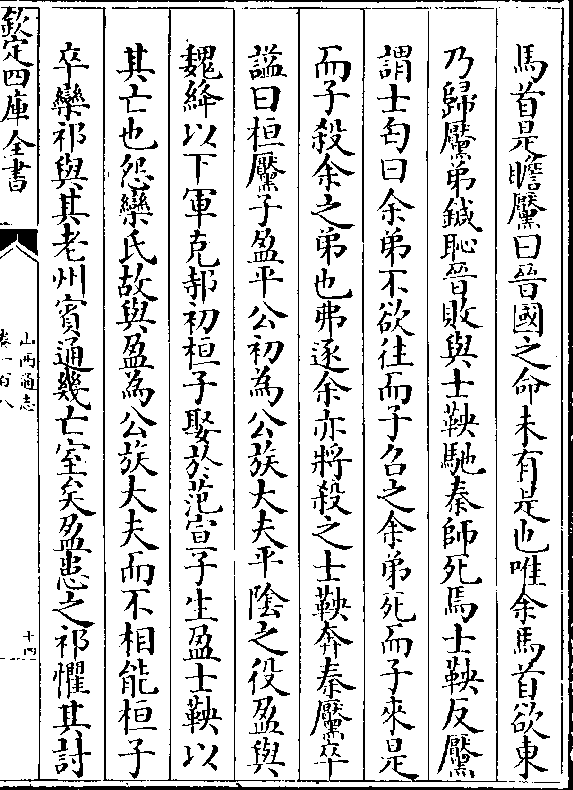 馬首是瞻黶曰晉國之命未有是也唯余馬首欲東
乃歸黶弟鍼恥晉敗與士鞅馳秦師死焉士鞅反黶
謂士匄曰余弟不欲往而子召之余弟死而子來是
而子殺余之弟也弗逐余亦將殺之士鞅奔秦黶卒
諡曰桓黶子盈平公初為公族大夫平陰之役盈與
魏絳以下軍克邿初桓子娶於范宣子生盈士鞅以
其亡也怨欒氏故與盈為公族大夫而不相能桓子
卒欒祁與其老州賓通幾亡室矣盈患之祁懼其討
欽定四庫全書
山西通志
卷一百八
十四